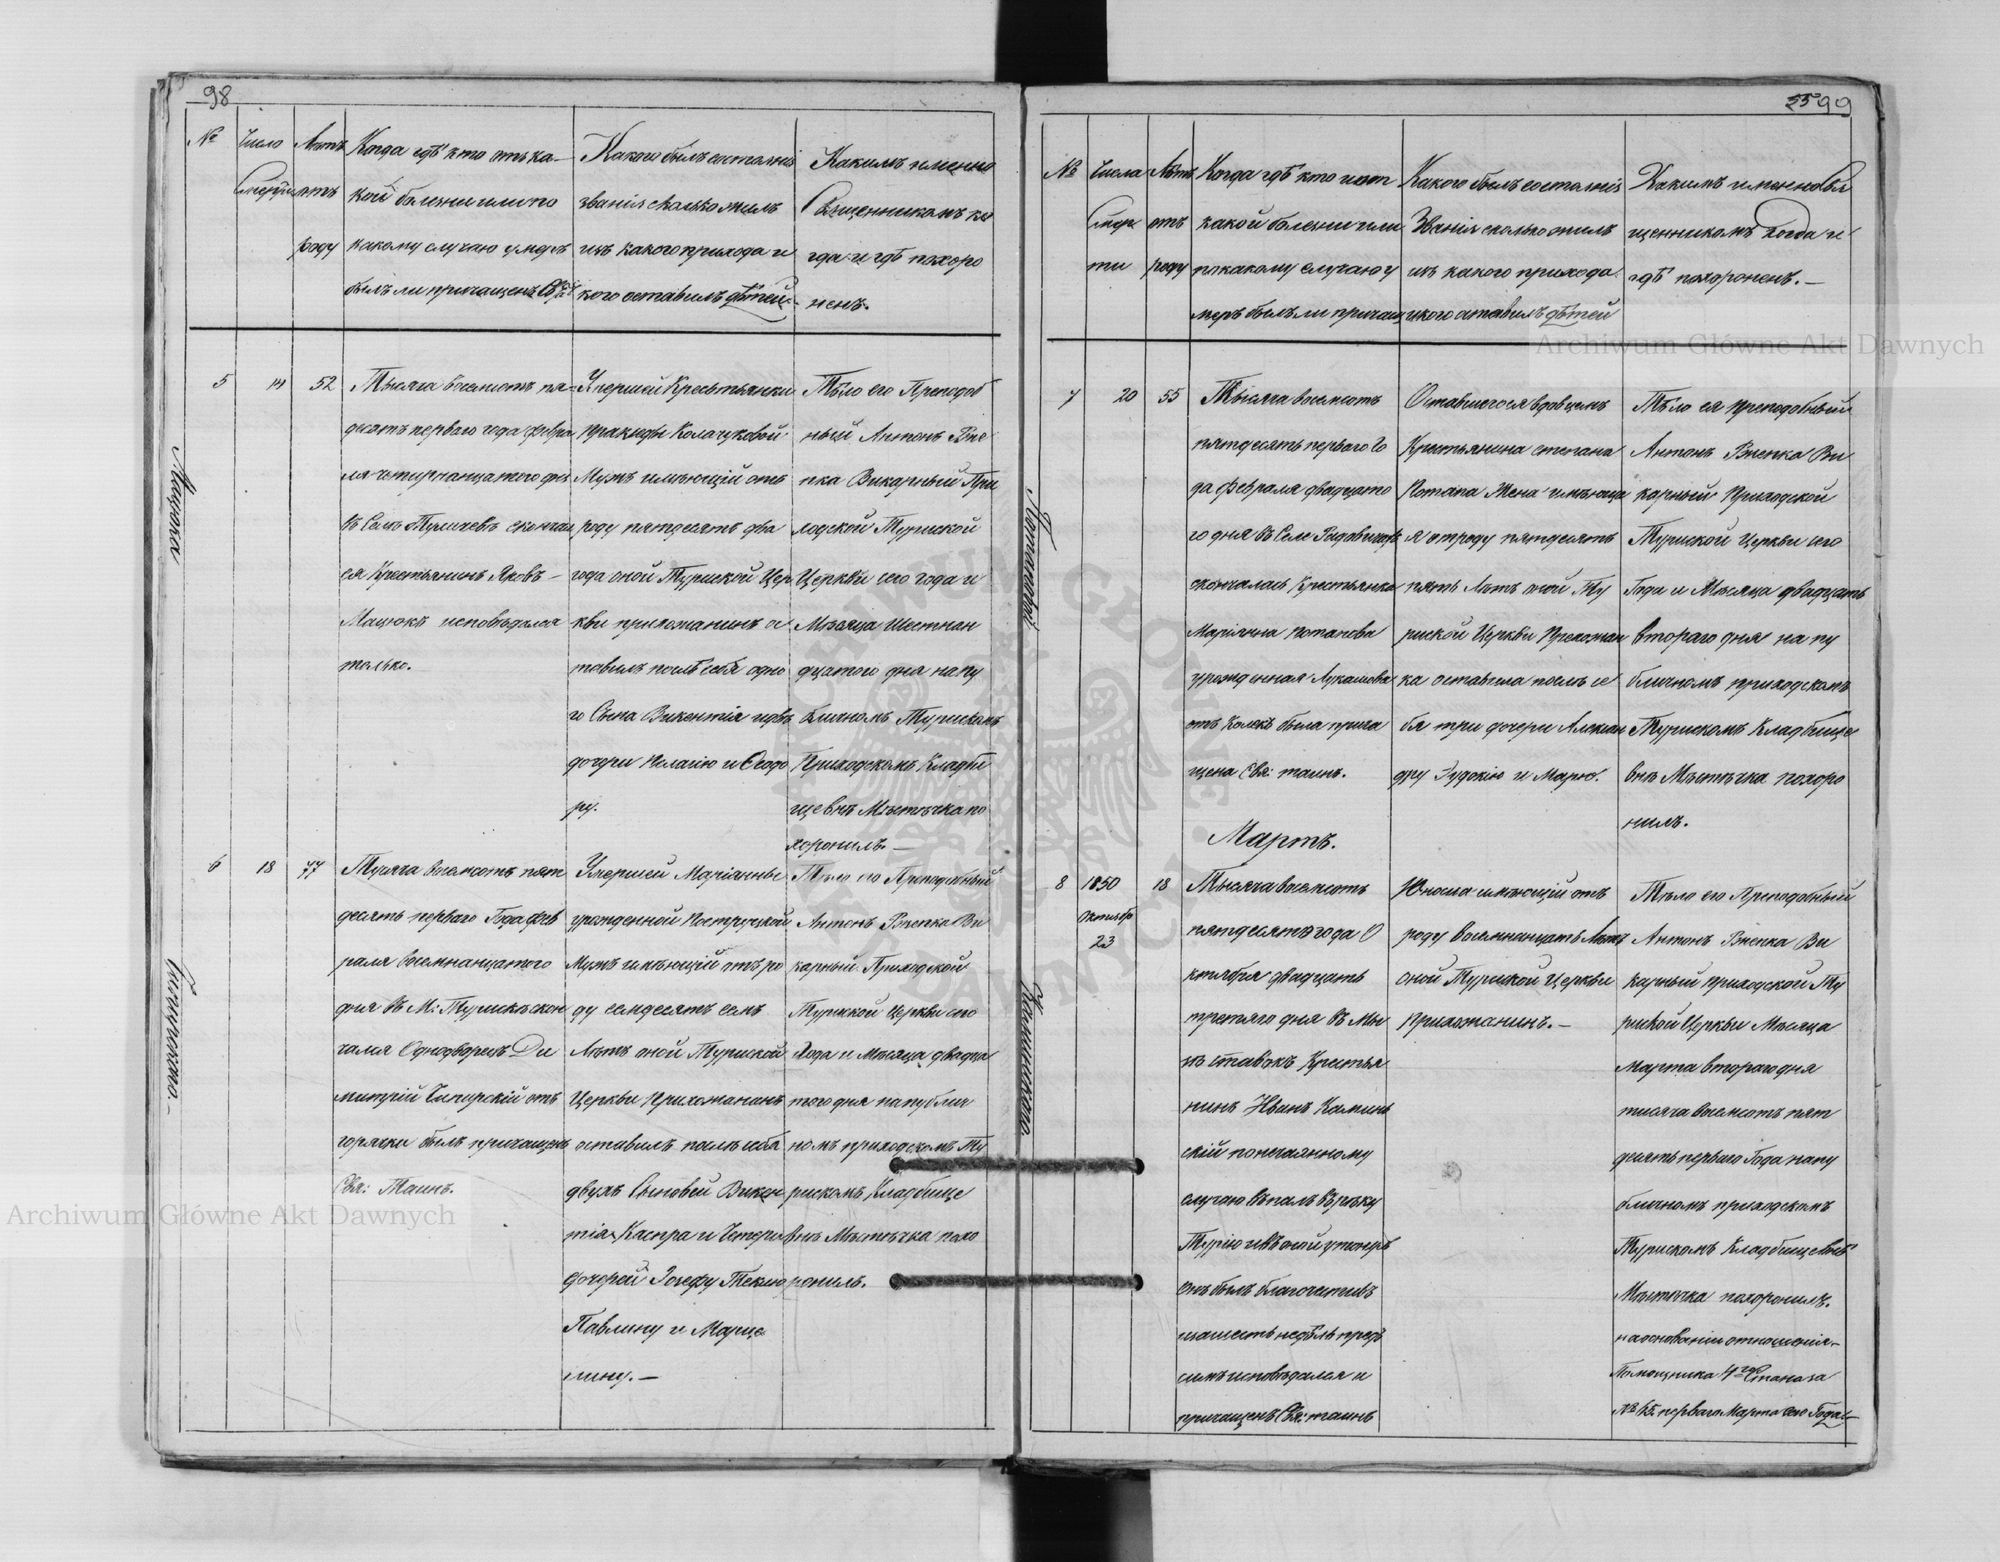 98
№
Число
Смерти
Лѣтъ
отъ
роду
Когда гдѣ кто отъ ка-
кой болезни или по
какому случаю умеръ
былъ ли причащенъ Св.
Какого былъ состоянія
званія сколько жилъ
изъ какого прихода и
кого оставилъ дѣтей.
Какимъ именно
Священникомъ ко
гда и гдѣ похоро
ненъ.
Мацюка
5
14
52
Тысяча восемсотъ пя-
десятъ перваго года февра
ля четырнанцатого дня
въ Селѣ Туличевѣ скончал
ся Крестьянинъ Яковъ -
Мацюкъ исповѣдался
только.
Умершей Крестьянки
Пракседы Колачуковой
Мужъ имѣющій отъ
роду пятдесятъ два
года оной Турийской Цер
кви прихожанинъ ос
тавилъ послѣ себя одно
го Сына Викентія и двѣ
дочери Пелагію и Ѳеодо
ру.
Тѣло его Преподоб
ный Антонъ Рже
пка Викарный При
ходской Турийской
Церкви сего года и
Мѣсяца Шестнан
дцатого дня на пу
бличномъ Турискомъ
Приходскомъ Кладби
ще внѣ Мѣстечка по
хоронилъ. —
Чипирского.
6
18
77
Тысяча восемсотъ пят
десятъ перваго Года фев
раля восемнанцатого
дня въ М: Турискѣ скон
чался Однодворецъ Ди
митрій Чипирскій отъ
горячки былъ причащенъ
Свя: Таинъ.
Умершей Маріанны
урожденной Пострруцкой
Мужъ имѣющій отъ ро
ду семдесятъ семь
Лѣтъ оной Турийской
Церкви Прихожанинъ
оставилъ послѣ себя
двухъ Сыновей Викен
тія Каспра и Четеро
дочерей Іозефу Теклю
Павлину и Марце
лину. —
Тѣло его Преподобный
Антонъ Ржепка Ви
карный Приходской
Турийской Церкви сего
Года и Мѣсяца двадца
того дня на публич
номъ приходскомъ Ту
рискомъ Кладбище
внѣ Мѣстечка похо
ронилъ.
Archiwum Główne Akt Dawnych
55 99
№
Числа
Смер
ти
Лѣтъ
отъ
роду
Когда гдѣ кто и от
какой болезни или
по какому случаю у
меръ былъ ли причащ
Какого былъ состоянія
Званія сколько жилъ
изъ какого прихода
и кого оставилъ дѣтей
Какимъ именно Свя
щенникомъ когда и
гдѣ похороненъ. —
Archiwum Główne Akt Dawnych
Потаповой
7
20
55
Тысяча восемсотъ
пятдесятъ перваго Го
да февраля двадцато
го дня въ Селе Радовичахъ
скончалась Крестьянка
Маріянна Потапова
урожденная Лукашова
отъ Колекъ была прича
щена Свя: таинъ.
Оставшегося вдовцемъ
Крестьянина степана
Потапа Жена имѣюща
я отроду пятдесятъ
пять Лѣтъ оной Ту
рийской Церкви Прихожан
ка оставила послѣ се
бя три дочери Алексан
дру Эудокію и Марю.
Тѣло ея преподобный
Антонъ Ржепка Ви
карный Приходской
Турийской Церкви сего
Года и Мѣсяца двадцать
втораго дня на пу
бличномъ приходскомъ
Турискомъ Кладбище
внѣ Мѣстечка похоро
нилъ.
Мартъ.
Каминского
8
1850
Октябр
23
18
Тысяча восемсотъ
пятдесятъ года О
ктября двадцать
третяго дня въ Мы
нъ ставокъ Крестья
нинъ Иванъ Камин
скій по нечаянному
случаю впалъ въ рѣку
Турію и въ оной утонулъ
онъ былъ благочестивъ
исповѣдался и
причащенъ Свя: таинъ
Юноша имѣющій отъ
роду восемнанцать Лѣтъ
оной Турийской Церкви
прихожанинъ. —
Тѣло его Преподобный
Антонъ Ржепка Ви
карный приходской Ту
рийской Церкви Мѣсяца
Марта втораго дня
тысяча восемсотъ пят
десятъ перваго Года на пу
бличномъ приходскомъ
Турискомъ Кладбище внѣ
Мѣстечка похоронилъ.
на основаніи отношенія
Помощника 4го Стана за
№ 65. перваго Марта сего Года. —